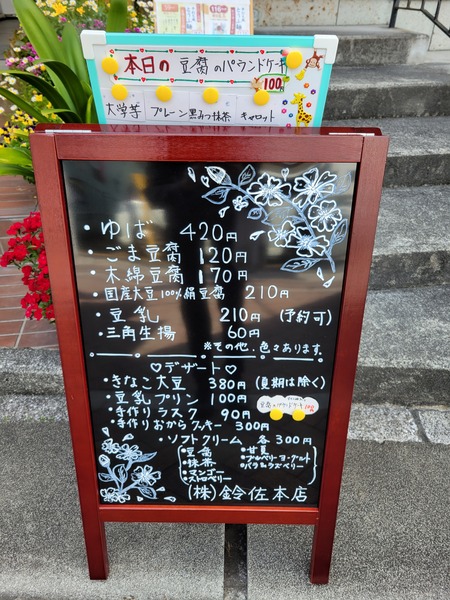 本日の 豆腐のパウンドケーキ
100
大学芋 プレーン 黒みつ 抹茶 キャロット
・ゆば 420円
・ごま豆腐 120円
・木綿豆腐 170円
・国産大豆100%絹豆腐 210円
・豆乳 210円 (予約可)
・三角生揚 60円
※その他、色々あります。
♡デザート♡
・きなこ大豆 380円 (夏期は除く)
・豆乳プリン 100円
・手作りラスク 90円
・手作りおからクッキー 300円
豆腐のパウンドケーキ 100
・ソフトクリーム 各300円
・豆腐
・抹茶
・マンゴー
・ストロベリー
・甘夏
・ブルーベリーヨーグルト
・バラ&ラズベリー
(株)鈴佐本店